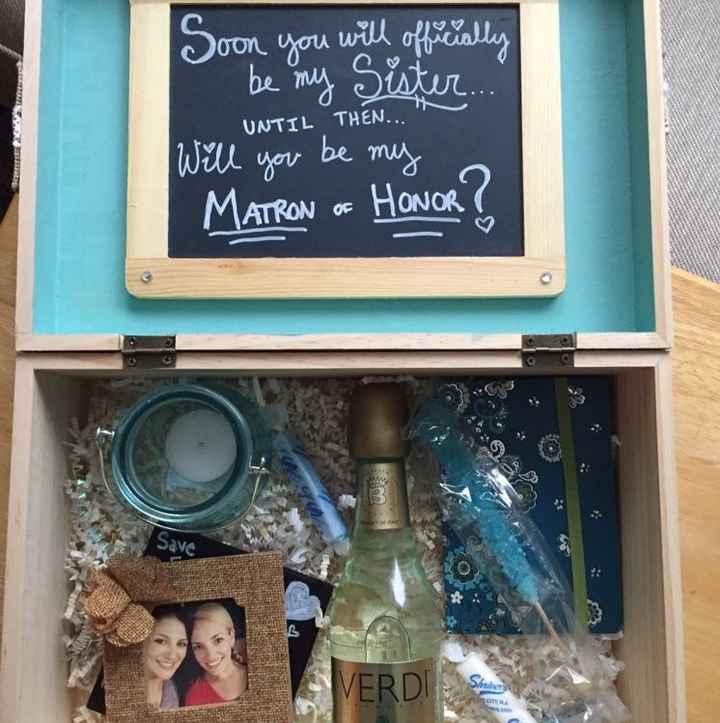 Soon you will officially
be my Sister...
UNTIL THEN...
Will you be my
MATRON OF HONOR?
Save
VERDI
Shriver's